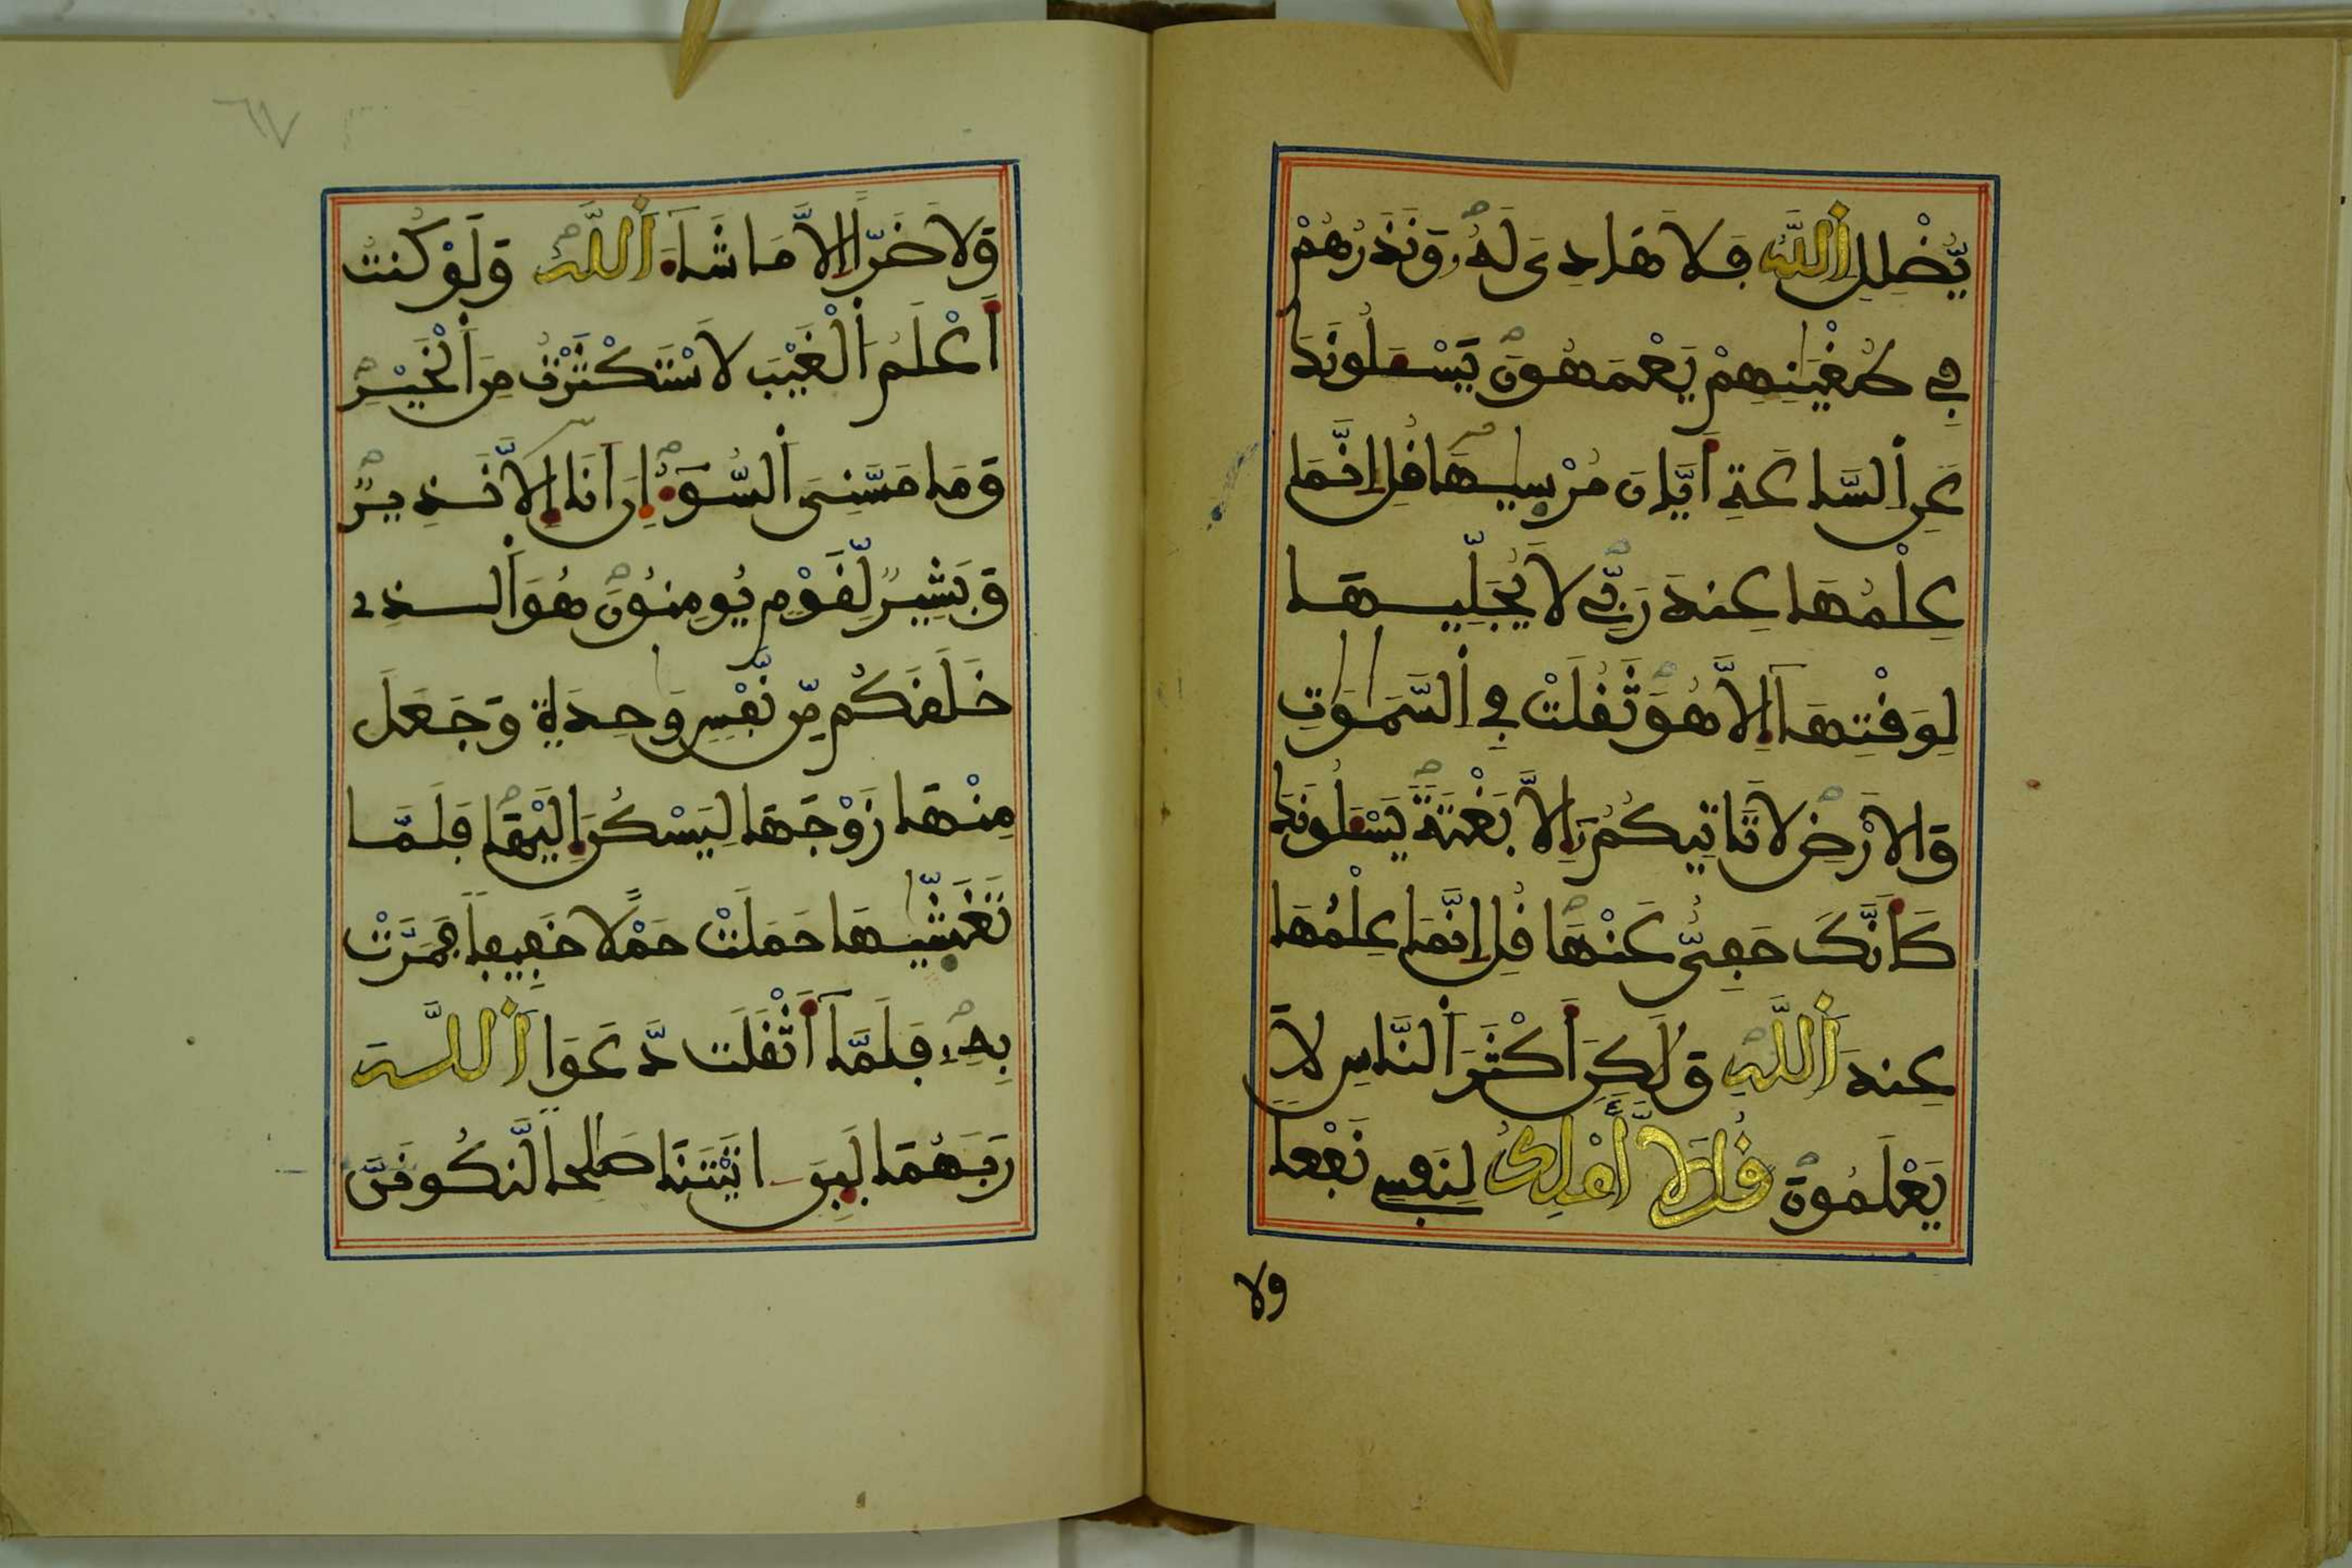 يُّضْلِلِ اِ۬للَّهُ فَلَا هَادِيَ لَهُۥ وَنَذَرُهُمْ
فِے طُغْيَٰنِهِمْ يَعْمَهُونَ يَسْـَٔلُونَكَ
عَنِ اِ۬لسَّاعَةِ أَيَّانَ مُرْسَيٰهَا قُلِ اِنَّمَا
عِلْمُهَا عِندَ رَبِّے لَا يُجَلِّيهَا
لِوَقْتِهَآ إِلَّا هُوَ ثَقُلَتْ فِے اِ۬لسَّمَٰوَٰتِ
وَالَارْضِ لَا تَاتِيكُمُۥٓ إِلَّا بَغْتَةً يَسْـَٔلُونَكَ
كَأَنَّكَ حَفِيٌّ عَنْهَا قُلِ اِنَّمَا عِلْمُهَا
عِندَ اَ۬للَّهِ وَلَٰكِنَّ أَكْثَرَ اَ۬لنَّاسِ لَا
يَعْلَمُونَ قُل لَّآ أَمْلِكُ لِنَفْسِے نَفْعاً
ولا
وَلَا ضَرّاً اِلَّا مَا شَآءَ اَ۬للَّهُ وَلَوْ كُنتُ
أَعْلَمُ اُ۬لْغَيْبَ لَاسْتَكْثَرْتُ مِنَ اَ۬لْخَيْرِ
وَمَا مَسَّنِيَ اَ۬لسُّوٓءُ اِنَ اَنَا إِلَّا نَذِيرٌ
وَبَشِيرٌ لِّقَوْمٍ يُومِنُونَ هُوَ اَ۬لذِے
خَلَقَكُم مِّن نَّفْسٍ وَٰحِدَةٍ وَجَعَلَ
مِنْهَا زَوْجَهَا لِيَسْكُنَ إِلَيْهَا فَلَمَّا
تَغَشَّيٰهَا حَمَلَتْ حَمْلًا خَفِيفاً فَمَرَّتْ
بِهِۦ فَلَمَّآ أَثْقَلَت دَّعَوَا اَ۬للَّهَ
رَبَّهُمَا لَئِنَ اٰتَيْتَنَا صَٰلِحاً لَّنَكُونَنَّ
٦٧